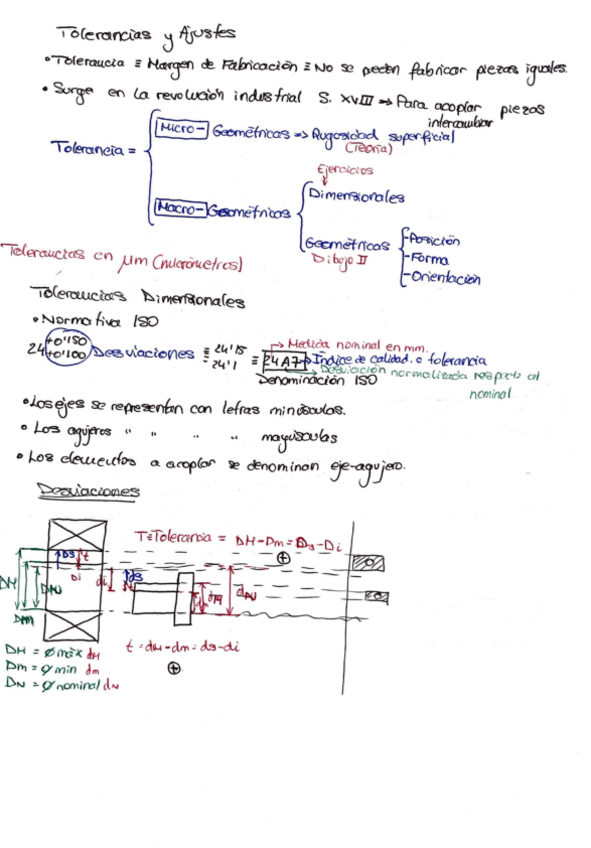 Tolerancias y Ajustes
• Tolerancia ≡ Margen de Fabricación ≡ No se peden fabricar piezas iguales.
• Surge en la revolución industrial S. XVIII ⇒ Para acoplar piezas
intercambiar
Tolerancia =
Micro- Geométricas => Rugosidad superficial
(Teoría)
Ejercicios
Macro- Geométricos
Dimensionales
Geométricas
Dibujo II
- Posición
- Forma
- Orientación
Tolerancias en μm (micrómetros)
Tolerancias Dimensionales
• Normativa ISO
24 +0'150 +0'100 Desviaciones ≡ 24'15 24'1 ≡ 24 A7
→ Medida nominal en mm.
Índice de calidad o tolerancia
Desviación normalizada respecto al
nominal
Denominación ISO
• Los ejes se representan con letras minúsculas.
• Los agujeros " " " " mayúsculas
• Los elementos a acoplar se denominan eje-agujero.
Desviaciones
T ≡ Tolerancia = DM - Dm = Ds - Di
Ds t
Di
DM
DN
Dm
di
ds
dm
dM
dN
DM = Ø máx dM
Dm = Ø min dm
DN = Ø nominal dN
t = dM - dm = ds - di